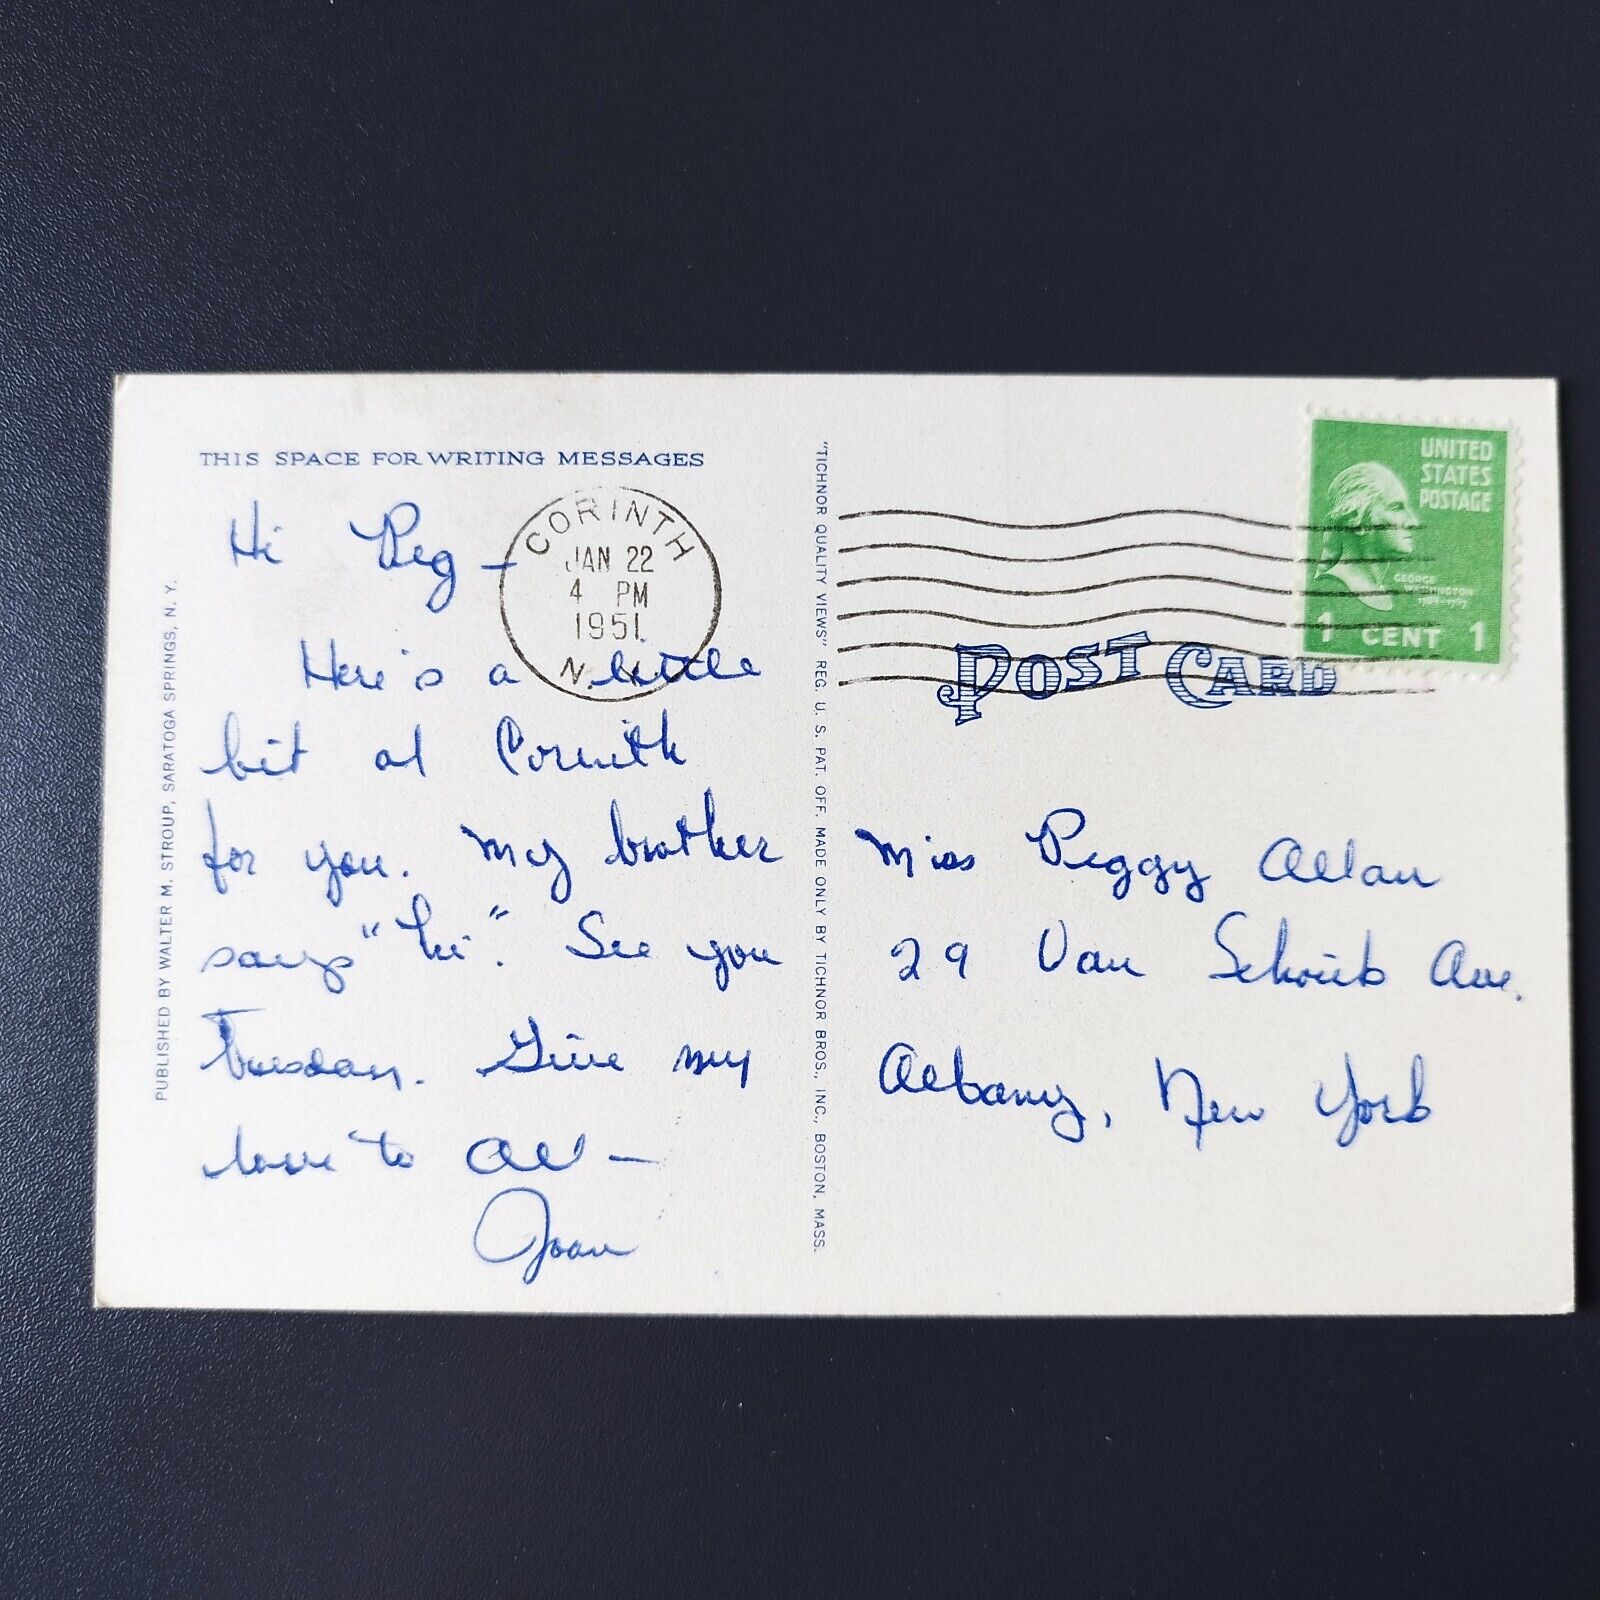 THIS SPACE FOR WRITING MESSAGES
Hi Peg —
Here's a little
bit of Corinth
for you. My brother
says "hi". See you
Tuesday. Give my
love to All —
Joan
CORINTH
JAN 22
4 PM
1951
N. Y.
PUBLISHED BY WALTER M. STROUP, SARATOGA SPRINGS, N. Y.
"TICHNOR QUALITY VIEWS" REG. U. S. PAT. OFF. MADE ONLY BY TICHNOR BROS., INC., BOSTON, MASS.
UNITED
STATES
POSTAGE
GEORGE
WASHINGTON
1789-1797
1 CENT 1
POST CARD
Miss Peggy Allan
29 Van Schoick Ave.
Albany, New York